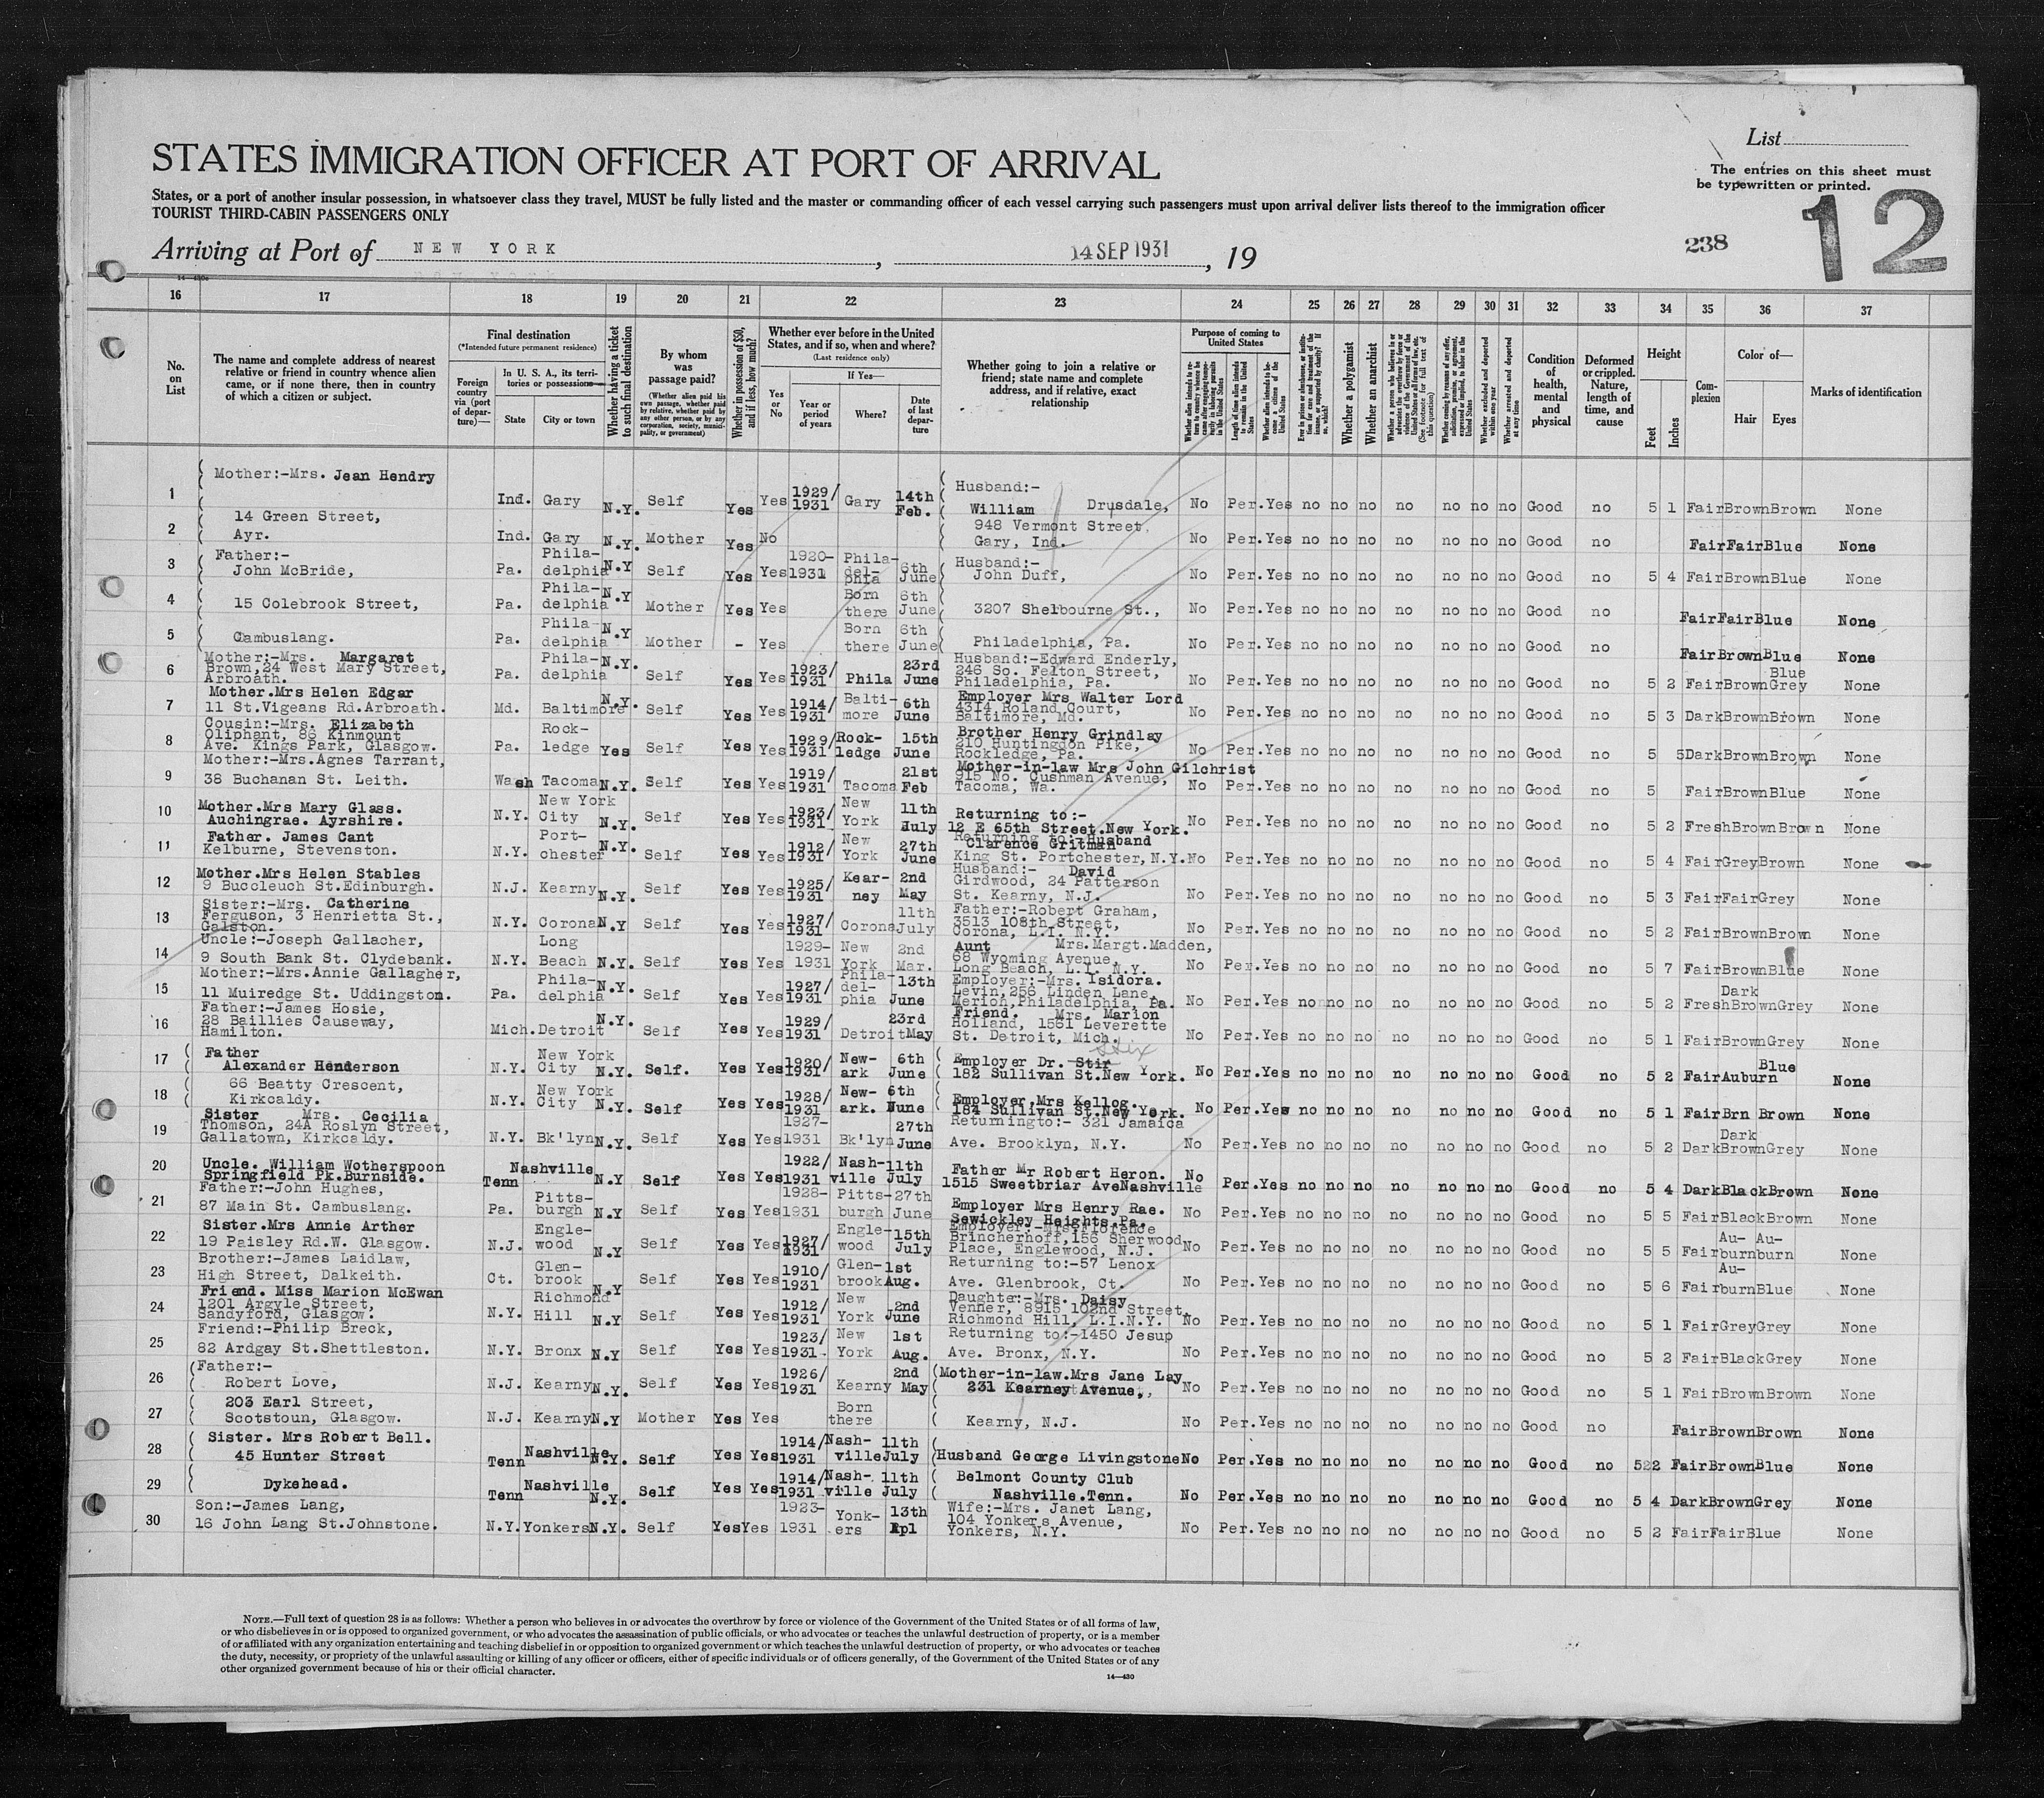 List
STATES IMMIGRATION OFFICER AT PORT OF ARRIVAL
The entries on this sheet must
be typewritten or printed.
States, or a port of another insular possession, in whatsoever class they travel, MUST be fully listed and the master or commanding officer of each vessel carrying such passengers must upon arrival deliver lists thereof to the immigration officer
TOURIST THIRD-CABIN PASSENGERS ONLY
12
238
Arriving at Port of NEW YORK, 14 SEP 1931, 19
16 17 18 19 20 21 22 23 24 25 26 27 28 29 30 31 32 33 34 35 36 37
No. on List
The name and complete address of nearest relative or friend in country whence alien came, or if none there, then in country of which a citizen or subject.
Final destination
(*Intended future permanent residence)
Foreign country via (port of departure)—
In U. S. A., its territories or possessions—
State City or town
Whether having a ticket to such final destination
By whom was passage paid?
(Whether alien paid his own passage, whether paid by relative, whether paid by any other person, or by any corporation, society, municipality, or government)
Whether in possession of $50, and if less, how much?
Whether ever before in the United States, and if so, when and where?
(Last residence only)
Yes or No
If Yes—
Year or period of years Where? Date of last departure
Whether going to join a relative or friend; state name and complete address, and if relative, exact relationship
Purpose of coming to United States
Length of time alien intends to remain in the United States
Whether alien intends to become a citizen of the United States
Whether a polygamist
Whether an anarchist
Whether excluded and deported within one year
Whether arrested and deported at any time
Condition of health, mental and physical
Deformed or crippled. Nature, length of time, and cause
Height
Feet Inches
Complexion
Color of—
Hair Eyes
Marks of identification
1 Mother:-Mrs. Jean Hendry Ind. Gary N.Y. Self Yes Yes 1929/1931 Gary 14th Feb. Husband:- William Drysdale, No Per. Yes no no no no no no no Good no 5 1 Fair Brown Brown None
2 14 Green Street, Ayr. Ind. Gary N.Y. Mother Yes No 948 Vermont Street, Gary, Ind. No Per. Yes no no no no no no no Good no Fair Fair Blue None
3 Father:- John McBride, Pa. Philadelphia N.Y Self Yes Yes 1920-1931 Philadelphia 6th June Husband:- John Duff, No Per. Yes no no no no no no no Good no 5 4 Fair Brown Blue None
4 15 Colebrook Street, Pa. Philadelphia N.Y Mother Yes Yes Born there 6th June 3207 Shelbourne St., No Per. Yes no no no no no no no Good no Fair Fair Blue None
5 Cambuslang. Pa. Philadelphia N.Y Mother - Yes Born there 6th June Philadelphia, Pa. No Per. Yes no no no no no no no Good no Fair Brown Blue None
6 Mother:-Mrs. Margaret Brown, 24 West Mary Street, Arbroath. Pa. Philadelphia N.Y. Self Yes Yes 1923/1931 Phila 23rd June Husband:-Edward Enderly, 246 So. Felton Street, Philadelphia, Pa. No Per. Yes no no no no no no no Good no 5 2 Fair Brown Blue Grey None
7 Mother.Mrs Helen Edgar 11 St.Vigeans Rd.Arbroath. Md. Baltimore N.Y. Self Yes Yes 1914/1931 Baltimore 6th June Employer Mrs Walter Lord 4314 Roland Court, Baltimore, Md. No Per. Yes no no no no no no no Good no 5 3 Dark Brown Brown None
8 Cousin:-Mrs. Elizabeth Oliphant, 86 Kinmount Ave. Kings Park, Glasgow. Pa. Rockledge Yes Self Yes Yes 1929/1931 Rockledge 15th June Brother Henry Grindlay 210 Huntingdon Pike, Rockledge, Pa. No Per. Yes no no no no no no no Good no 5 5 Dark Brown Brown None
9 Mother:-Mrs.Agnes Tarrant, 38 Buchanan St. Leith. Wash Tacoma N.Y. Self Yes Yes 1919/1931 Tacoma 21st Feb Mother-in-law Mrs John Gilchrist 915 No. Cushman Avenue, Tacoma, Wa. No Per. Yes no no no no no no no Good no 5 Fair Brown Blue None
10 Mother.Mrs Mary Glass. Auchingrae. Ayrshire. N.Y. New York City N.Y. Self Yes Yes 1923/1931 New York 11th July Returning to:- 12 E 65th Street.New York. No Per. Yes no no no no no no no Good no 5 2 Fresh Brown Brown None
11 Father. James Cant Kelburne, Stevenston. N.Y. Portchester N.Y. Self Yes Yes 1912/1931 New York 27th June Returning to: Husband Clarence Gritman King St. Portchester, N.Y. No Per. Yes no no no no no no no Good no 5 4 Fair Grey Brown None
12 Mother.Mrs Helen Stables 9 Buccleuch St.Edinburgh. N.J. Kearny N.Y. Self Yes Yes 1925/1931 Kearney 2nd May Husband:- David Girdwood, 24 Patterson St. Kearny, N.J. No Per. Yes no no no no no no no Good no 5 3 Fair Fair Grey None
13 Sister:-Mrs. Catherine Ferguson, 3 Henrietta St., Galston. N.Y. Corona N.Y Self Yes Yes 1927/1931 Corona 11th July Father:-Robert Graham, 3513 108th Street, Corona, L.I. N.Y. No Per. Yes no no no no no no no Good no 5 2 Fair Brown Brown None
14 Uncle:-Joseph Gallacher, 9 South Bank St. Clydebank. N.Y. Long Beach N.Y. Self Yes Yes 1929-1931 New York 2nd Mar. Aunt Mrs.Margt.Madden, 68 Wyoming Avenue, Long Beach, L.I. N.Y. No Per. Yes no no no no no no no Good no 5 7 Fair Brown Blue None
15 Mother:-Mrs.Annie Gallagher, 11 Muiredge St. Uddingston. Pa. Philadelphia N.Y. Self Yes Yes 1927/1931 Philadelphia 13th June Employer:-Mrs. Isidora. Levin,256 Linden Lane, Merion,Philadelphia, Pa. No Per. Yes no no no no no no no Good no 5 2 Fresh Dark Brown Grey None
16 Father:-James Hosie, 28 Baillies Causeway, Hamilton. Mich. Detroit N.Y. Self Yes Yes 1929/1931 Detroit 23rd May Friend. Mrs. Marion Holland, 1561 Leverette St. Detroit, Mich. No Per. Yes no no no no no no no Good no 5 1 Fair Brown Grey None
17 Father Alexander Henderson N.Y. New York City N.Y. Self. Yes Yes 1920/1931 Newark 6th June Employer Dr. Stir Stix 182 Sullivan St.New York. No Per. Yes no no no no no no no Good no 5 2 Fair Auburn Blue None
18 66 Beatty Crescent, Kirkcaldy. N.Y. New York City N.Y. Self Yes Yes 1928/1931 Newark. 6th June Employer.Mrs Kellog. 184 Sullivan St.New York. No Per. Yes no no no no no no no Good no 5 1 Fair Brn Brown None
19 Sister Mrs. Cecilia Thomson, 24A Roslyn Street, Gallatown, Kirkcaldy. N.Y. Bk'lyn N.Y. Self Yes Yes 1927-1931 Bk'lyn 27th June Returningto:- 321 Jamaica Ave. Brooklyn, N.Y. No Per. Yes no no no no no no no Good no 5 2 Dark Dark Brown Grey None
20 Uncle. William Wotherspoon Springfield Pk.Burnside. Tenn Nashville N.Y Self Yes Yes 1922/1931 Nashville 11th July Father Mr Robert Heron. 1515 Sweetbriar AveNashville No Per. Yes no no no no no no no Good no 5 4 Dark Black Brown None
21 Father:-John Hughes, 87 Main St. Cambuslang. Pa. Pittsburgh N.Y Self Yes Yes 1928-1931 Pittsburgh 27th June Employer Mrs Henry Rae. Sewickley Heights.Pa. No Per. Yes no no no no no no no Good no 5 5 Fair Black Brown None
22 Sister.Mrs Annie Arther 19 Paisley Rd.W. Glasgow. N.J. Englewood N.Y Self Yes Yes 1927/1931 Englewood 15th July Employer:-Miss Florence Brincherhoff,156 Sherwood Place, Englewood, N.J. No Per. Yes no no no no no no no Good no 5 5 Fair Auburn Auburn None
23 Brother:-James Laidlaw, High Street, Dalkeith. Ct. Glenbrook N.Y Self Yes Yes 1910/1931 Glenbrook 1st Aug. Returning to:-57 Lenox Ave. Glenbrook, Ct. No Per. Yes no no no no no no no Good no 5 6 Fair Auburn Blue None
24 Friend. Miss Marion McEwan 1201 Argyle Street, Sandyford, Glasgow. N.Y. Richmond Hill N.Y Self Yes Yes 1912/1931 New York 2nd June Daughter:-Mrs. Daisy Venner, 8915 102nd Street, Richmond Hill, L.I.N.Y. No Per. Yes no no no no no no no Good no 5 1 Fair Grey Grey None
25 Friend:-Philip Breck, 82 Ardgay St.Shettleston. N.Y. Bronx N.Y Self Yes Yes 1923/1931 New York 1st Aug. Returning to:-1450 Jesup Ave. Bronx, N.Y. No Per. Yes no no no no no no no Good no 5 2 Fair Black Grey None
26 Father:- Robert Love, N.J. Kearny N.Y. Self Yes Yes 1926/1931 Kearny 2nd May Mother-in-law.Mrs Jane Lay 231 Kearney Avenue, No Per. Yes no no no no no no no Good no 5 1 Fair Brown Brown None
27 203 Earl Street, Scotstoun, Glasgow. N.J. Kearny N.Y Mother Yes Yes Born there Kearny, N.J. No Per. Yes no no no no no no no Good no Fair Brown Brown None
28 Sister. Mrs Robert Bell. 45 Hunter Street Tenn Nashville N.Y. Self Yes Yes 1914/1931 Nashville 11th July Husband George Livingstone No Per. Yes no no no no no no no Good no 5 2 Fair Brown Blue None
29 Dykehead. Tenn Nashville N.Y. Self Yes Yes 1914/1931 Nashville 11th July Belmont County Club Nashville.Tenn. No Per. Yes no no no no no no no Good no 5 4 Dark Brown Grey None
30 Son:-James Lang, 16 John Lang St.Johnstone. N.Y. Yonkers N.Y. Self Yes Yes 1923-1931 Yonkers 13th Apl Wife:-Mrs. Janet Lang, 104 Yonkers Avenue, Yonkers, N.Y. No Per. Yes no no no no no no no Good no 5 2 Fair Fair Blue None
NOTE.—Full text of question 28 is as follows: Whether a person who believes in or advocates the overthrow by force or violence of the Government of the United States or of all forms of law,
or who disbelieves in or is opposed to organized government, or who advocates the assassination of public officials, or who advocates or teaches the unlawful destruction of property, or is a member
of or affiliated with any organization entertaining and teaching disbelief in or opposition to organized government or which teaches the unlawful destruction of property, or who advocates or teaches
the duty, necessity, or propriety of the unlawful assaulting or killing of any officer or officers, either of specific individuals or of officers generally, of the Government of the United States or of any
other organized government because of his or their official character.
14—430